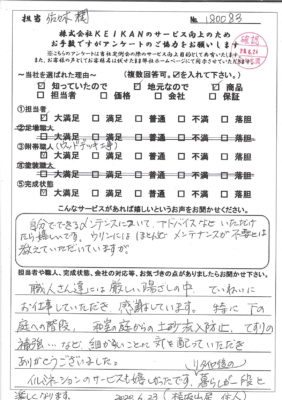 担当 佐木 様 No. 190083
株式会社KEIKANのサービス向上のため
お手数ですがアンケートのご協力をお願いします
～当社を選ばれた理由～ (複数回答可。☑を入れて下さい。)
☑ 知っていたので ☑ 地元なので ☑ 商品
□ 担当者 □ 価格 □ 会社 □ 保証
①担当者
☑ 大満足 □ 満足 □ 普通 □ 不満 □ 落胆
②足場職人
□ 大満足 □ 満足 □ 普通 □ 不満 □ 落胆
③附帯職人(ウッドデッキ工事)
☑ 大満足 □ 満足 □ 普通 □ 不満 □ 落胆
④塗装職人
□ 大満足 □ 満足 □ 普通 □ 不満 □ 落胆
⑤完成状態
☑ 大満足 □ 満足 □ 普通 □ 不満 □ 落胆
こんなサービスがあれば嬉しいというお声をお聞かせ下さい。
自分でできるメンテナンスにおいて、アドバイスなどいただけ
たら嬉しいです。ウリンにはほとんどメンテナンスが不要とは
教えていただいていますが。
担当者や職人、完成状態、会社の対応等、お気づきの点がありましたらお聞かせ下さい。
職人さん達には厳しい暑さの中、ていねいに
お仕事していただき感謝しています。特に下の
庭への階段、和室の庭からの土砂流入防止、てすりの
補強…など、細か多いことに対応していただき
ありがとうございました。
イルミネーションのサービスも嬉しかったです。暮らしが一段と
楽しくなります。 2020.6.23